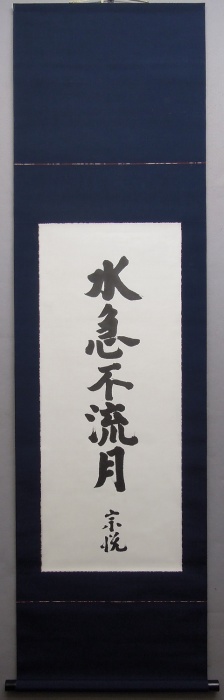 水急不流月
宗悦